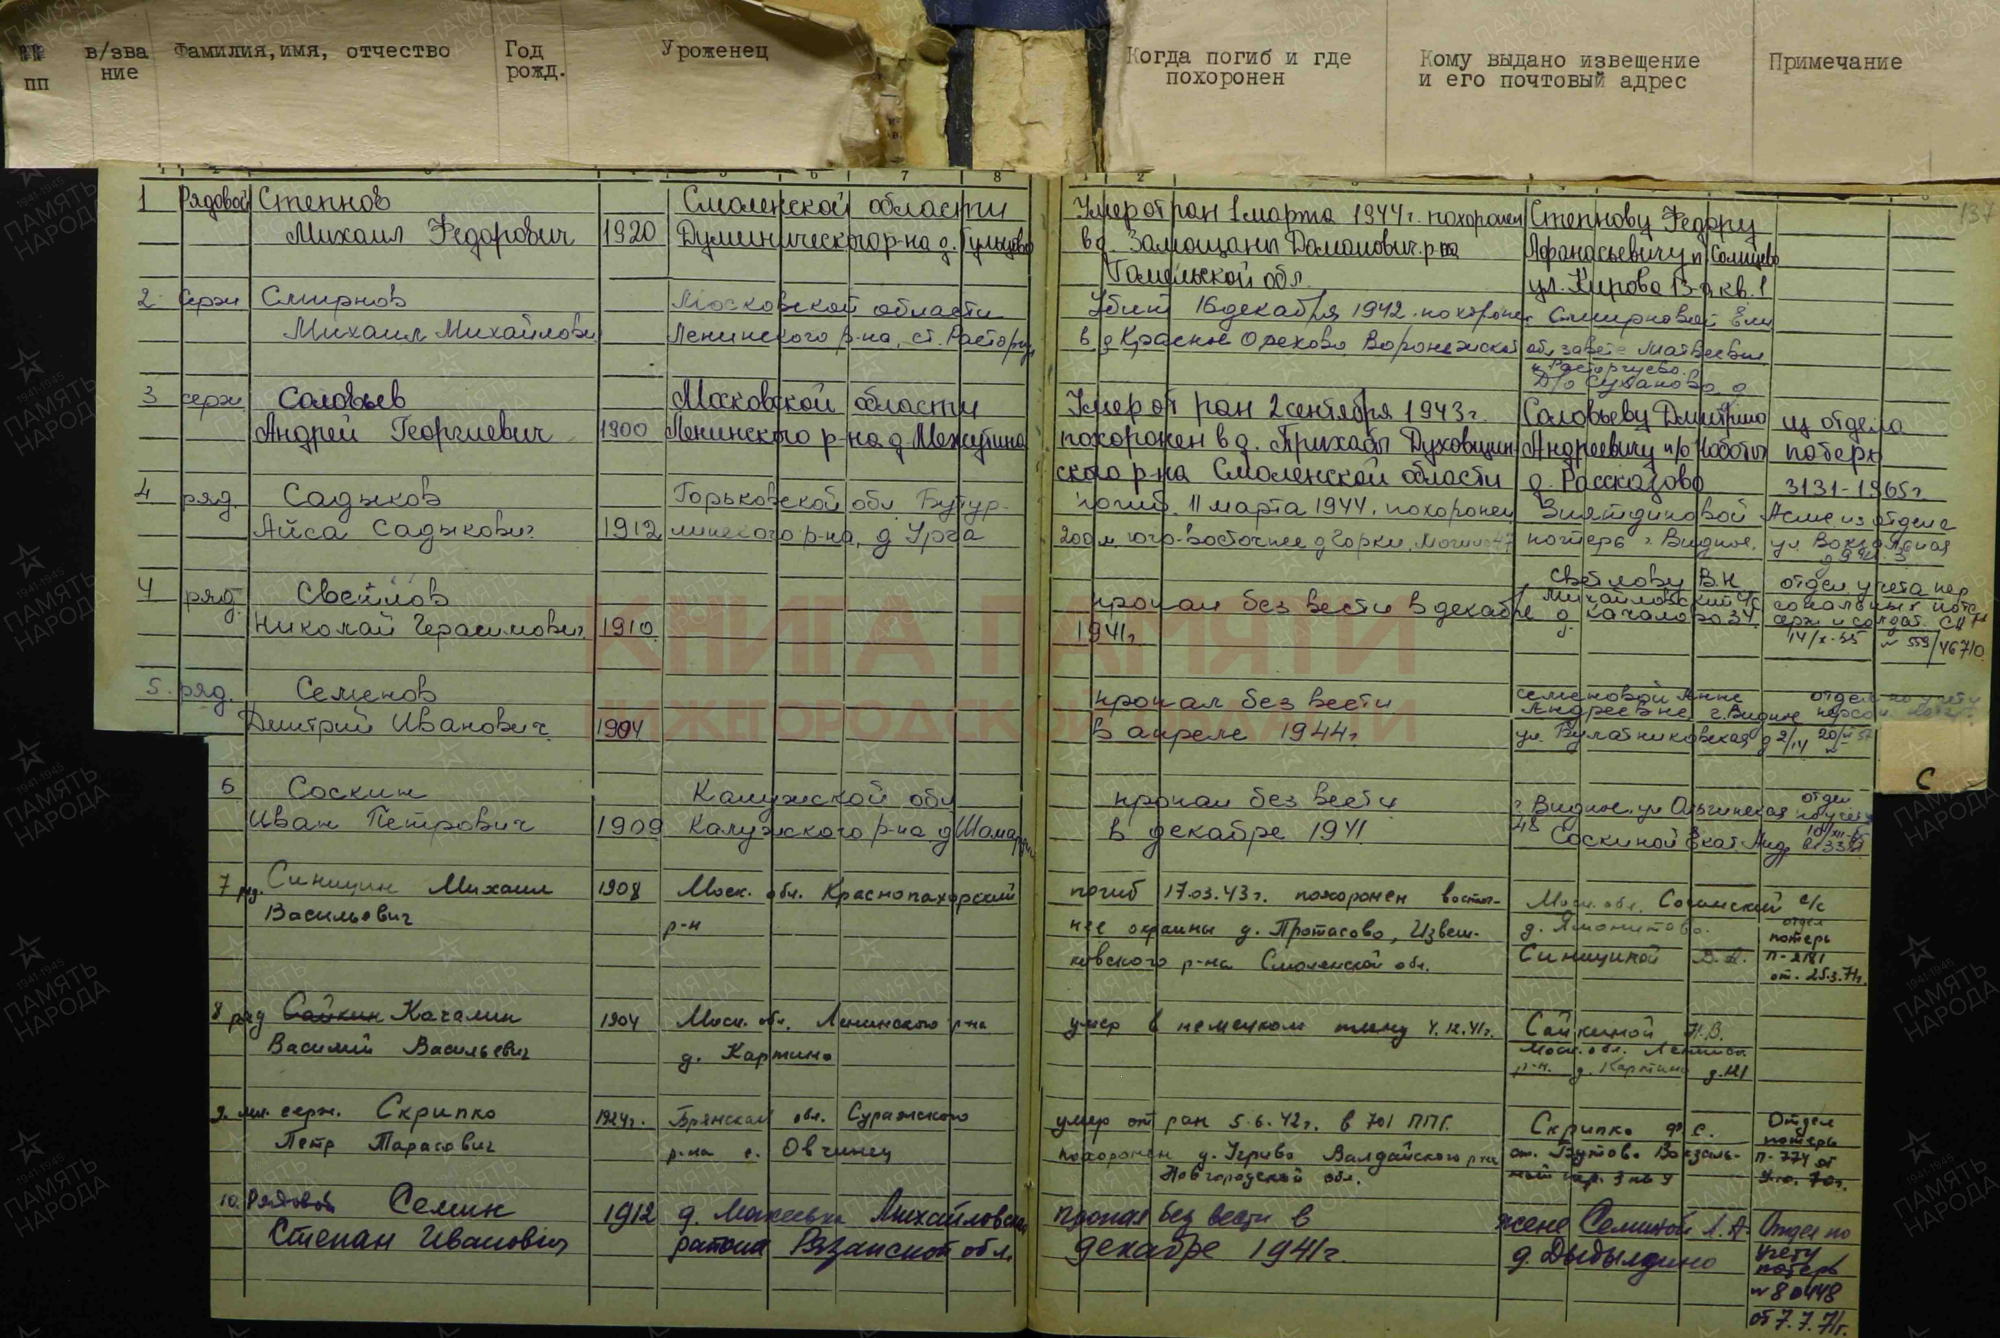 №№ пп
в/зва ние
Фамилия, имя, отчество
Год рожд.
Уроженец
Когда погиб и где похоронен
Кому выдано извещение и его почтовый адрес
Примечание
137
1 Рядовой Степнов Смоленской области Умер от ран 1 марта 1944 г. похоронен Степнову Федору
Михаил Федорович 1920 Думиническогор-на д. в д. Замощаны Доманович. р-на Афанасьевичу п.
Гомельской обл. ул. Кирова 13-а кв. 1
2. Серж Смирнов Московской области Убит 16 декабря 1942. похоронен Смирновой Ели
Михаил Михайлович Ленинского р-на, ст. Расторгуе в д Красное Орехово Воронежской обл завете Матвеевне
п. Расторгуево
Д/о Суханово д
3 серж Соловьев Московской области Умер от ран 2 сентября 1943 г. Соловьеву Дмитрию из отдела
Андрей Георгиевич 1900 Ленинского р-на д. похоронен в д. Приха Духовщин- Андреевичу п/о потерь
ского р-на Смоленской области д. Рассказово 3131-1965г
4 ряд. Садыков Горьковской обл. Бутур- погиб 11 марта 1944. похоронен Зиятдиновой из отдела
Айса Садыкович 1912 линского р-на, д Урга 200 м. юго-восточнее д Горки, Могила 47 потерь г. Видное, ул. Вокзальная
4 ряд. Светлов пропал без вести в декабре Светлову В.Н отдел учета пер
Николай Герасимович 1910 1941г Михайловский с/с сональных поте
д. Качалово 34 серж и солдат. СА
14/х-55 № 559/46710
5. ряд. Семенов пропал без вести Семеновой Анне отдел по учету
Дмитрий Иванович 1904 в апреле 1944г. Андреевне г. Видное персон. потер.
ул. Булатниковская д 2/14
С
6 Соскин Калужской обл пропал без вести г. Видное. ул Ольгинская отдел по учету
Иван Петрович 1909 Калужского р-на д в декабре 1941 48 Соскиной Екат. Анд
7 ряд. Синицин Михаил 1908 Моск. обл. Краснопахорский погиб 17.03.43г. похоронен восточ- Моск. обл. Сосенский с/с
Васильович р-н нее окраины д. Протасово, Извеш- д. отдел потерь
ковского р-на Смоленской обл. Синициной от. 25.3.71г.
8 ряд Сайкин Качалин 1904 Моск. обл. Ленинского р-на умер в немецком плену 4.12.41г. Сайкиной Н.В.
Василий Васильевич д. Картино Моск. обл. Ленинск.
р-н. д. Картино
9. мл. серж. Скрипко 1924г. Брянской обл. Суражского умер от ран 5.6.42г. в 701 ППГ. Скрипко Ф. С. Отдел
Петр Тарасович р-на с. Овчинец похоронен д. Ужриво Валдайского р-на ст. Бутово Вокзаль- потерь
Новгородской обл. п-774 от
10. Рядовой Семин 1912 д. Макеевка Михайловско пропал без вести в жене Семиной А. А. Отдел по
Степан Иванович района Рязанской обл. декабре 1941г. д. Дыдылдино учету
потерь
№ 80448
от 7.7.71г.
КНИГА ПАМЯТИ
НИЖЕГОРОДСКОЙ ОБЛАСТИ
1941-1945
ПАМЯТЬ НАРОДА